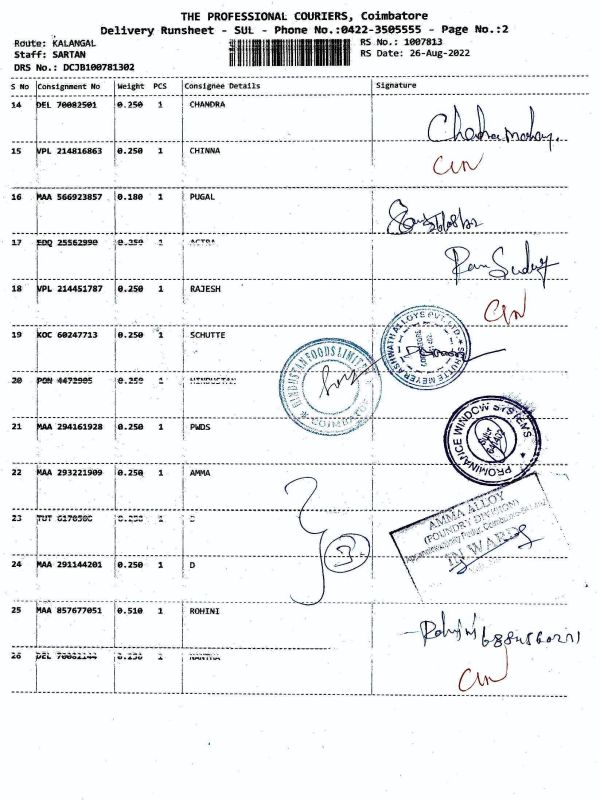 THE PROFESSIONAL COURIERS, Coimbatore
Delivery Runsheet - SUL - Phone No.:0422-3505555 - Page No.:2
Route: KALANGAL
RS No.: 1007813
Staff: SARTAN
RS Date: 26-Aug-2022
DRS No.: DCJB100781302
S No Consignment No Weight PCS Consignee Details Signature
14 DEL 70082501 0.250 1 CHANDRA
15 VPL 214816863 0.250 1 CHINNA
16 MAA 566923857 0.180 1 PUGAL
26/08/22
17 EDQ 25562990 0.250 1
18 VPL 214451787 0.250 1 RAJESH
19 KOC 60247713 0.250 1 SCHUTTE
HINDUSTAN FOODS LIMITED
20 PON 4472985 0.250 1 HINDUSTAN
21 MAA 294161928 0.250 1 PWDS
PROMINANCE WINDOW SYSTEMS
22 MAA 293221909 0.250 1 AMMA
AMMA ALLOY
(FOUNDRY DIVISION)
IN WARD
23 TUT 1 D
24 MAA 291144201 0.250 1 D
3
25 MAA 857677051 0.510 1 ROHINI
Rohini
26 DEL 70082144 0.250 1